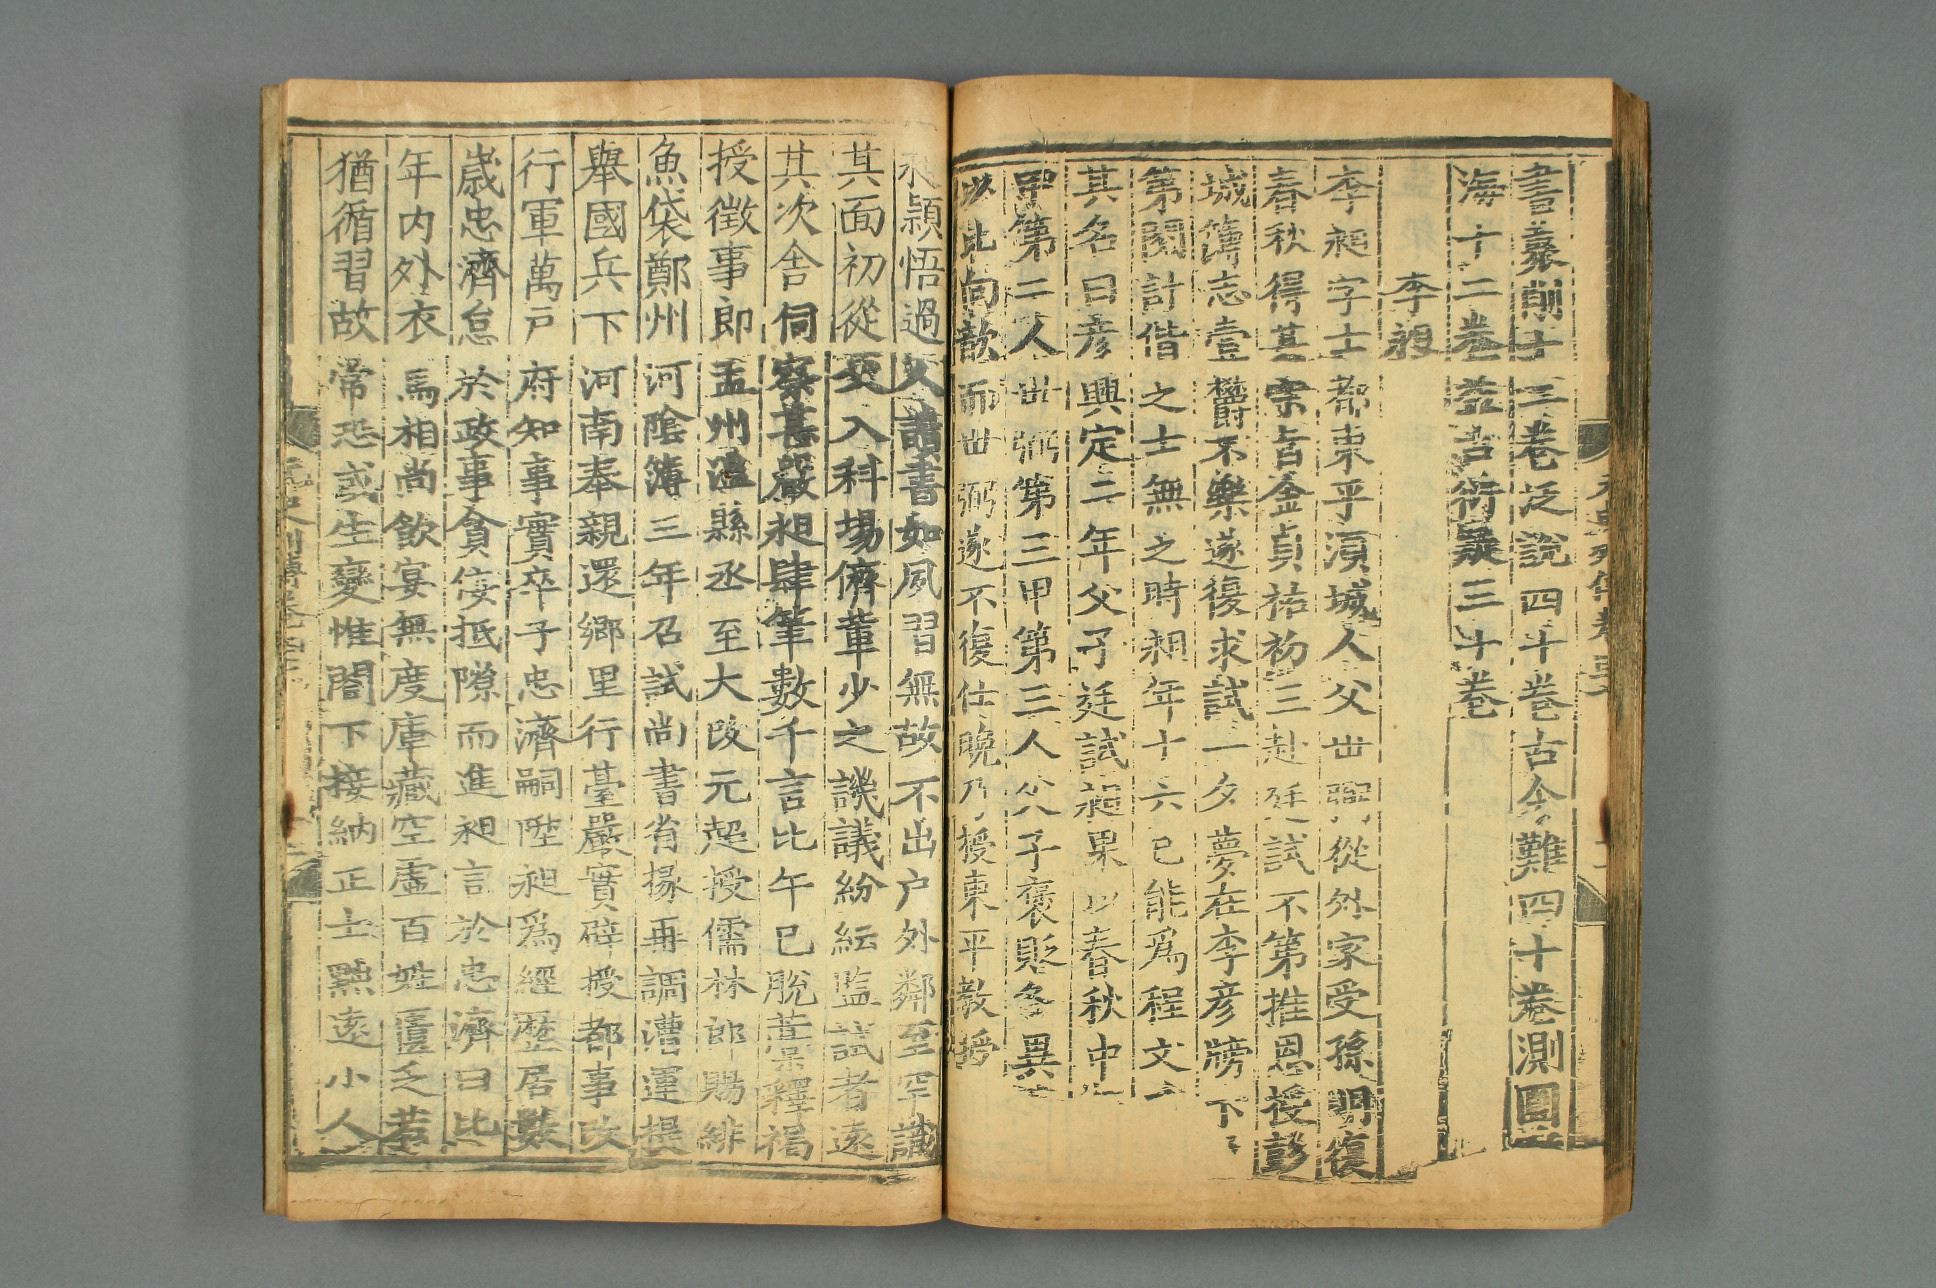 書藂削十二卷泛說四十卷古今難四十卷測圓
海十二卷益古衍疑三十卷
李昶
李昶字士都東平湏城人父世弼從外家受孫明復
春秋得其宗旨金貞祐初三赴廷試不第推恩授彭
城簿志壹鬱不樂遂復求試一夕夢在李彦牓下
第閱計偕之士無之時昶年十六已能爲程文
其名曰彦興定二年父子廷試昶果以春秋中
甲第二人世弼第三甲第三人父子褒貶各異
以比向歆而世弼遂不復仕晚乃授東平敎授
昶穎悟過人讀書如夙習無故不出户外鄰里罕識
其面初從父入科場儕軰少之譏議紛紜監試者遠
其次舍伺察甚嚴昶肆筆數千言比午已脫藁釋褐
授徵事郎孟州温縣丞至大改元超授儒林郎賜緋
魚袋鄭州河陰簿三年召試尚書省掾再調漕運提
舉國兵下河南奉親還鄉里行臺嚴實辟授都事改
行軍萬户府知事實卒子忠濟嗣陞昶爲經歷居數
歲忠濟怠於政事貪佞抵隙而進昶言於忠濟曰比
年内外衣馬相尚飲宴無度庫藏空虛百姓匱乏若
猶循習故常恐或生變惟閤下接納正士黜遠小人